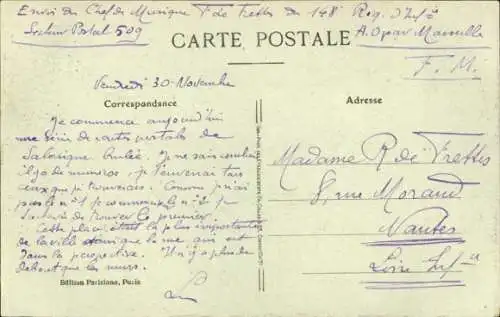 Envoi du Chef de Musique F. de Frettes du 148e Rég. d'Inf.ie
Secteur Postal 509
A. O. par Marseille
CARTE POSTALE
F. M.
Vendredi 30 Novembre
Correspondance
Adresse
Je commence aujourd'hui
une série de cartes postales de
Salonique brûlée. Je ne sais combien
il y a de numéros. J'enverrai tous
ceux que je trouverai. Comme je n'ai
pas le n° 1 je commence le n° 2 je
de trouver le premier.
Cette place était la plus importante
de la ville ainsi que la rue qui est
dans la perspective. Il n'y a plus de
debout que les murs.
Madame R. de Frettes
8, rue Morand
Nantes
Loire Inf.re
Edition Parisiana, Paris